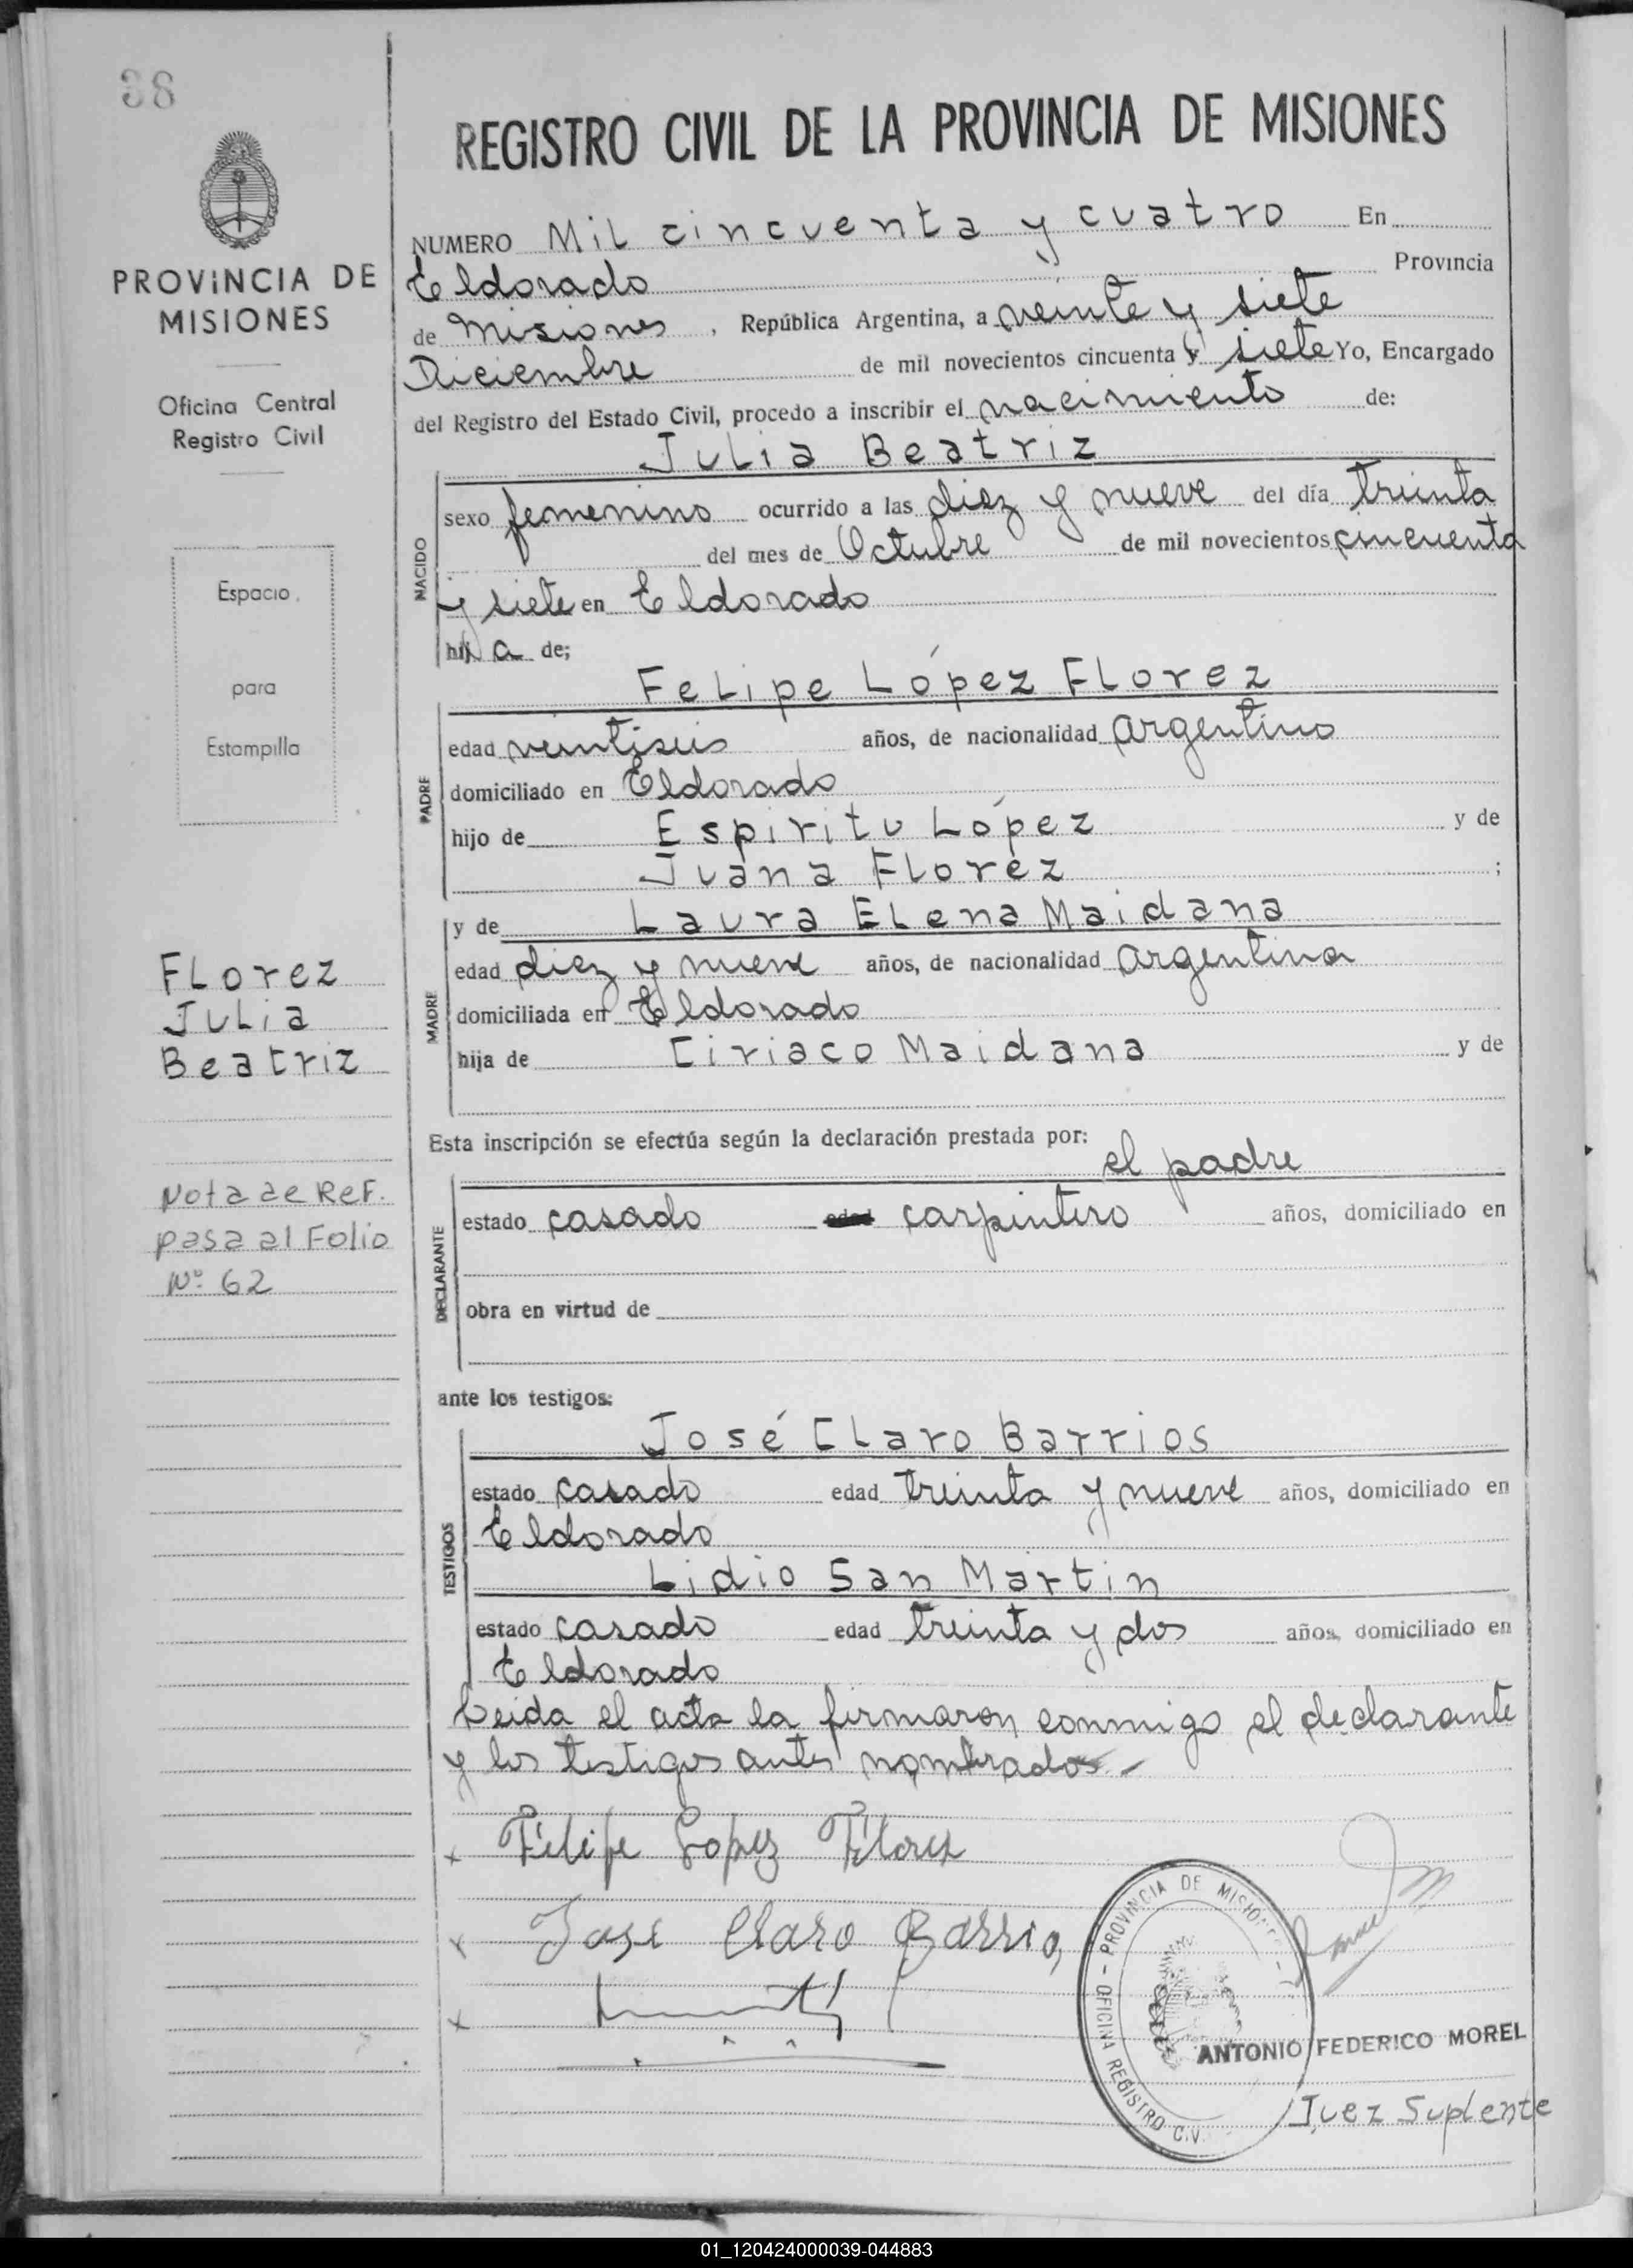 38
PROVINCIA DE
MISIONES
Oficina Central
Registro Civil
Espacio
para
Estampilla
Florez
Julia
Beatriz
Nota de Ref.
pasa al Folio
Nº 62
REGISTRO CIVIL DE LA PROVINCIA DE MISIONES
NUMERO Mil cincuenta y cuatro En
Eldorado Provincia
de Misiones, República Argentina, a veinte y siete
Diciembre de mil novecientos cincuenta y siete Yo, Encargado
del Registro del Estado Civil, procedo a inscribir el nacimiento de:
Julia Beatriz
NACIDO
sexo femenino ocurrido a las diez y nueve del día treinta
del mes de Octubre de mil novecientos cincuenta
y siete en Eldorado
hija de;
Felipe López Florez
PADRE
edad veintiseis años, de nacionalidad argentino
domiciliado en Eldorado
hijo de Espiritu López y de
Juana Florez ;
y de Laura Elena Maidana
MADRE
edad diez y nueve años, de nacionalidad argentina
domiciliada en Eldorado
hija de Ciriaco Maidana y de
Esta inscripción se efectúa según la declaración prestada por:
el padre
DECLARANTE
estado casado edad carpintero años, domiciliado en
obra en virtud de
ante los testigos:
José Claro Barrios
TESTIGOS
estado casado edad treinta y nueve años, domiciliado en
Eldorado
Lidio San Martin
estado casado edad treinta y dos años, domiciliado en
Eldorado
Leida el acta la firmaron conmigo el declarante
y los testigos antes nombrados.-
x Felipe Lopez Florez
x José Claro Barrios
x
PROVINCIA DE MISIONES - OFICINA REGISTRO CIV
ANTONIO FEDERICO MOREL
Juez Suplente
01_120424000039-044883